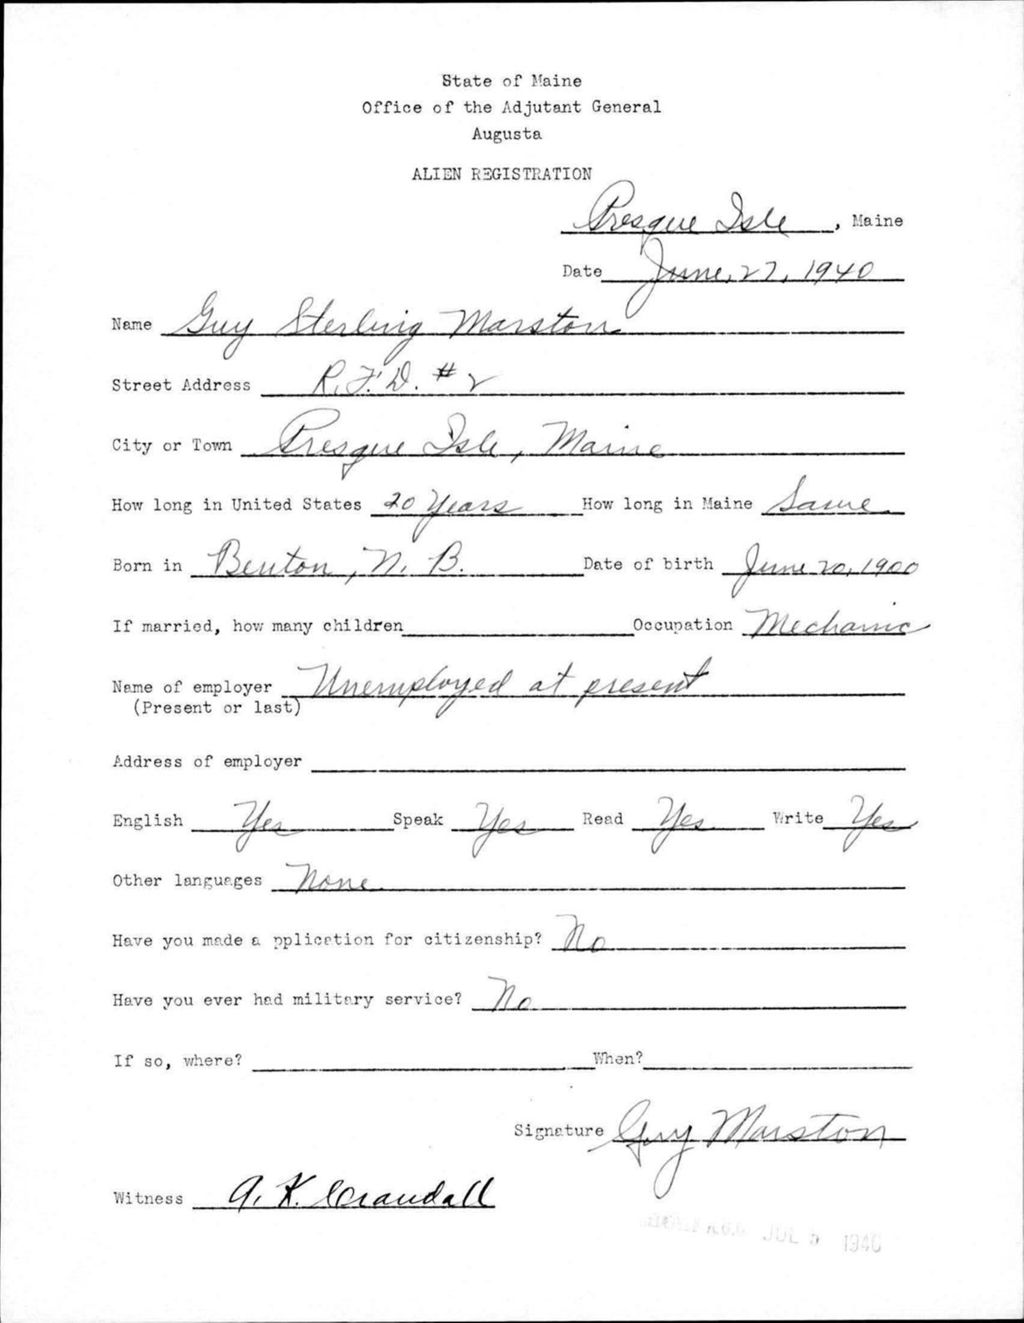 State of Maine
Office of the Adjutant General
Augusta
ALIEN REGISTRATION
Presque Isle, Maine
Date June, 27, 1940
Name Guy Sterling Marston
Street Address R.F.D. #2
City or Town Presque Isle, Maine
How long in United States 20 Years How long in Maine Same
Born in Benton, N. B. Date of birth June 20, 1900
If married, how many children Occupation Mechanic
Name of employer Unemployed at present
(Present or last)
Address of employer
English Yes Speak Yes Read Yes Write Yes
Other languages None
Have you made a pplication for citizenship? No
Have you ever had military service? No
If so, where? When?
Signature Guy Marston
Witness A. K. Crandall
A.G.O. JUL 5 1940